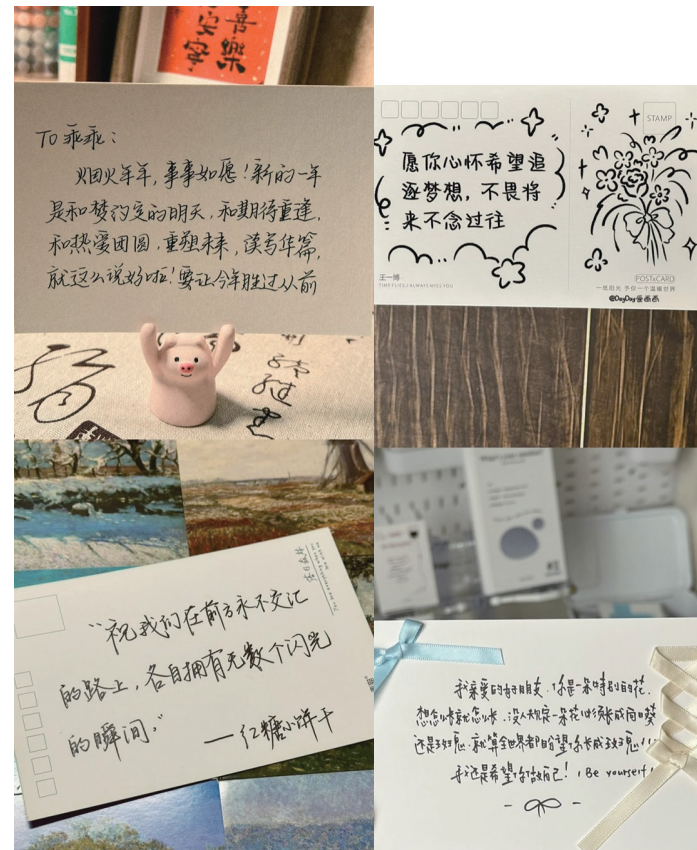 喜樂
安寧
To 乖乖：
烟火年年，事事如愿！新的一年
是和梦约定的明天，和期待重逢，
和热爱团圆，重塑未来，漢写华篇，
就这么说好啦！要让今年胜过从前
STAMP
愿你心怀希望追
逐梦想，不畏将
来不念过往
王一博
TIME FLIES,I ALWAYS MISS YOU
POSTxCARD
一纸阳光 予你一个温暖世界
@DayDay爱画画
“祝我们在前方永不交汇
的路上，各自拥有无数个闪光
的瞬间。”
——红糖小饼干
我亲爱的好朋友，你是一朵特别的花，
想怎么长就怎么长，没人规定一朵花必须长成向日葵
还是玫瑰，就算全世界都盼望你长成玫瑰！
我还是希望你做自己！，Be yourself！